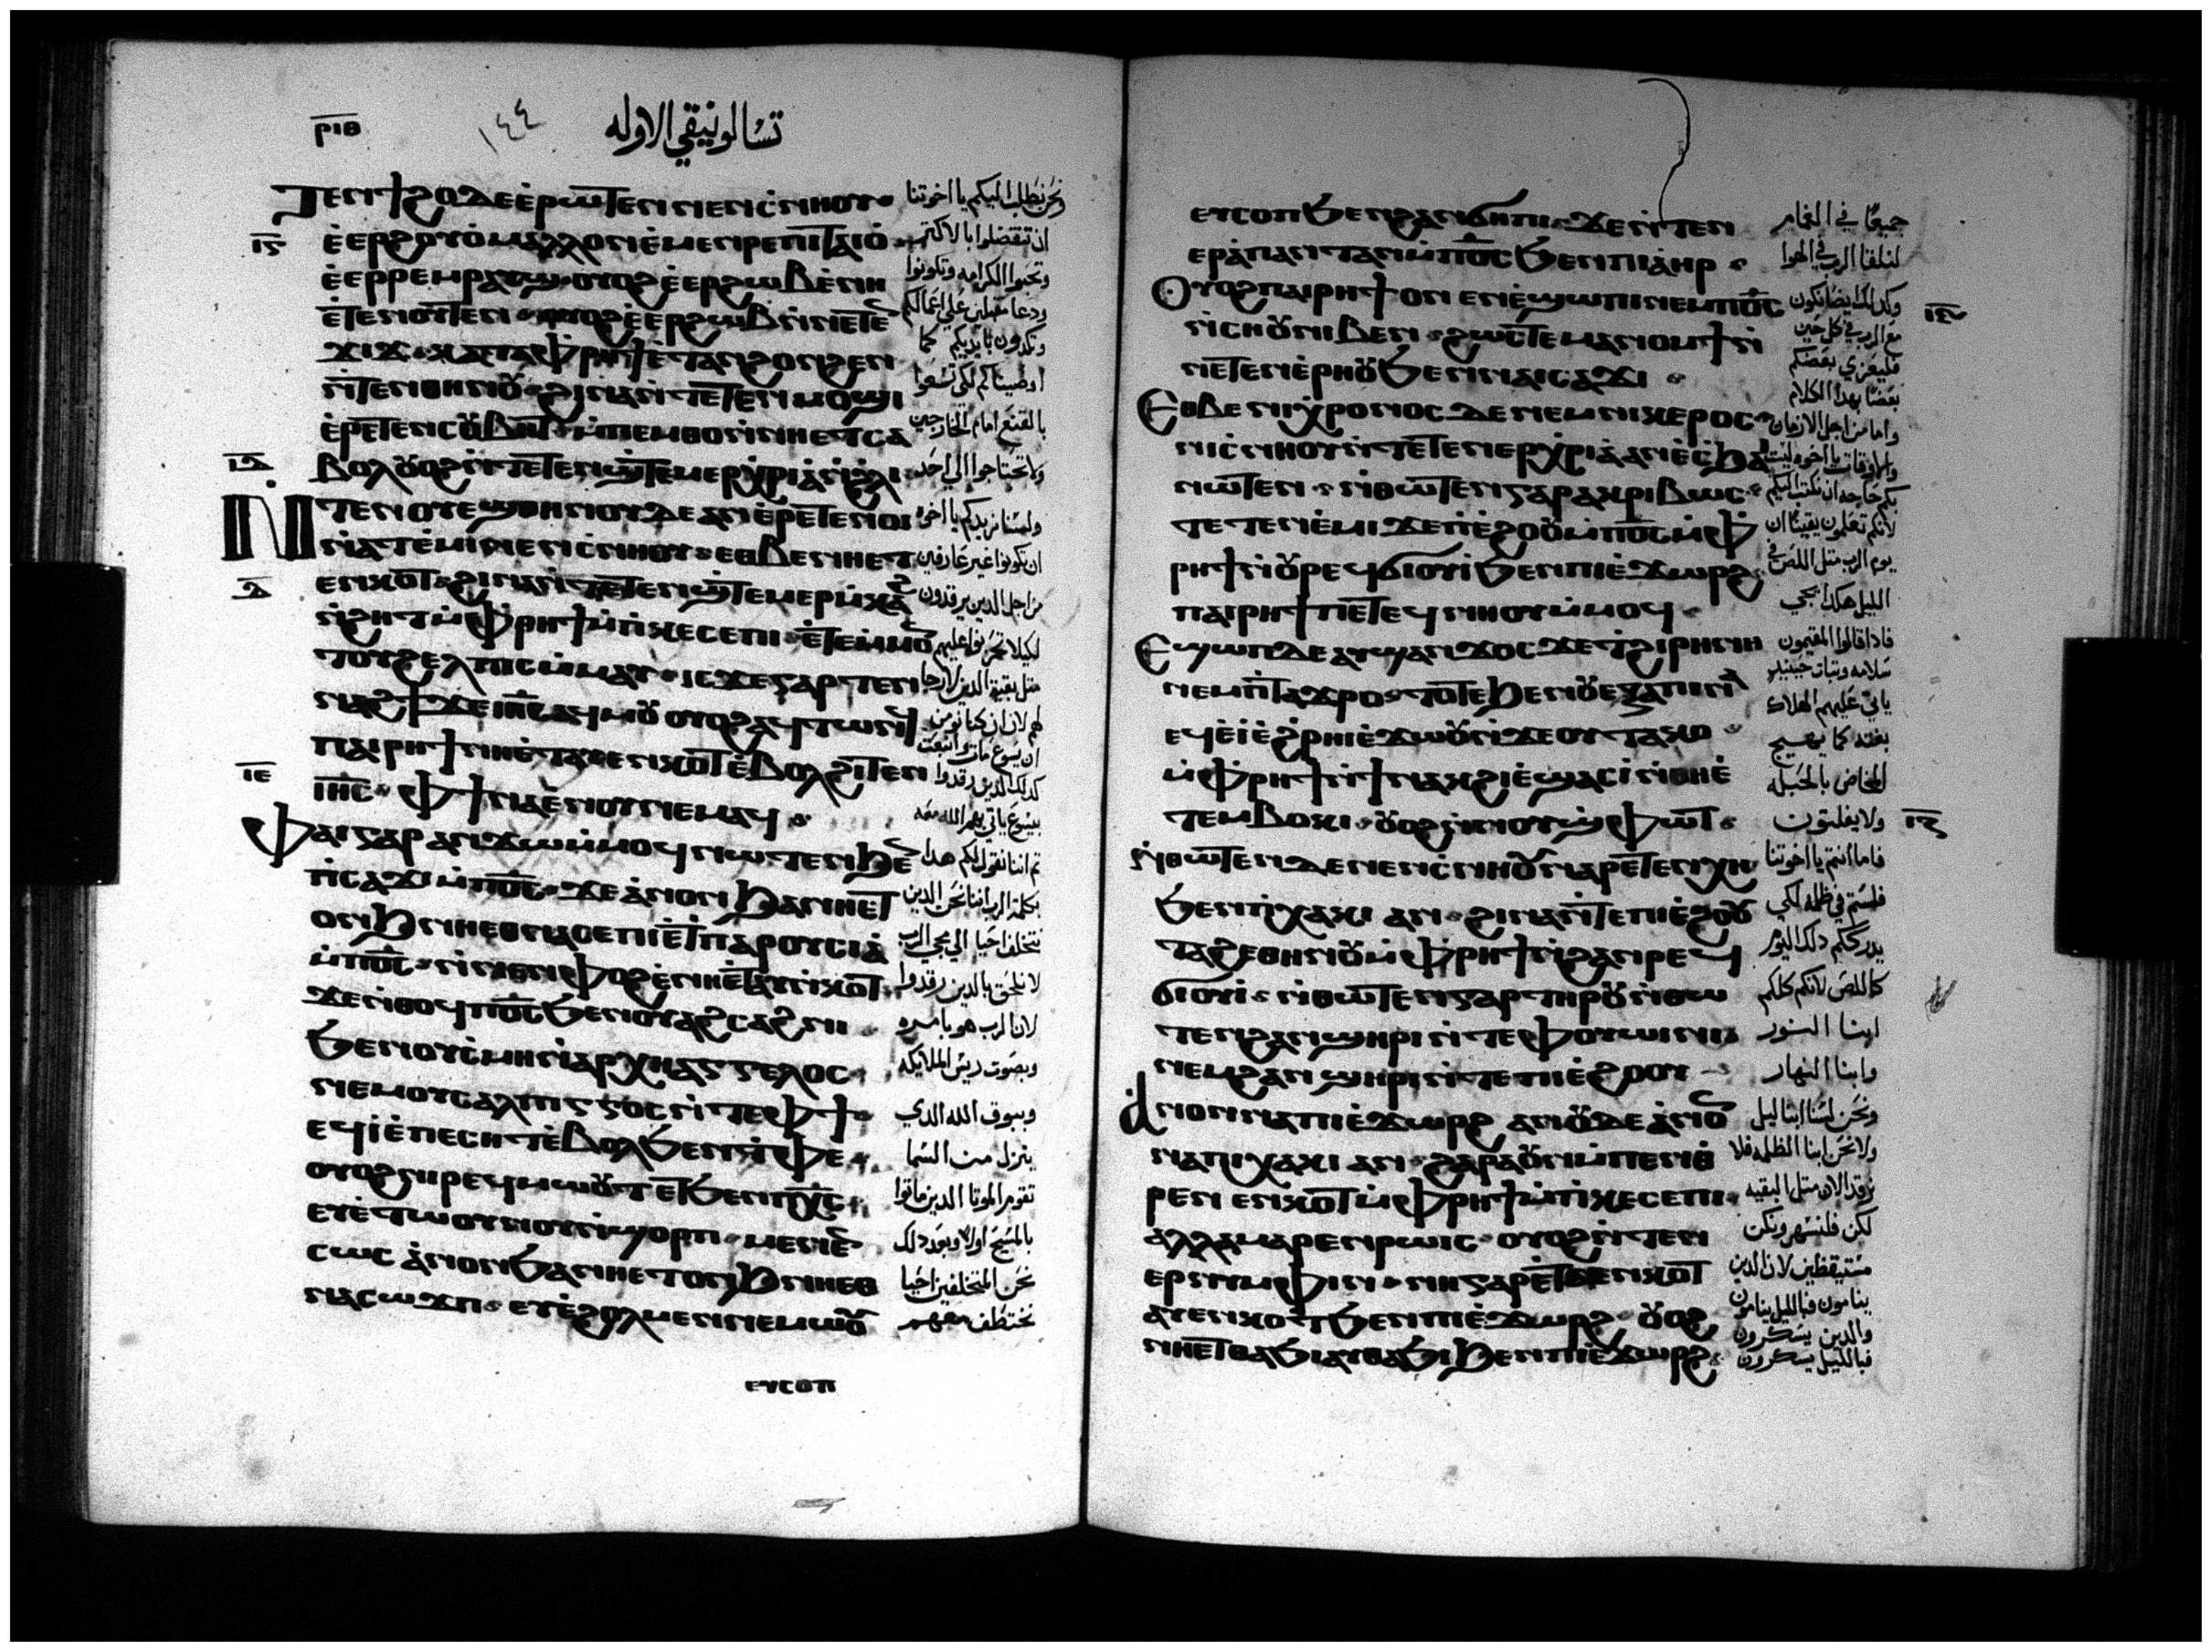 ⲣⲓⲑ
١٤٤
تسالونيقي الاوله
ⲧⲉⲛϯϩⲟ ⲇⲉ ⲉ̀ⲣⲱⲧⲉⲛ ⲛⲉⲛⲥ̀ⲛⲏⲟⲩ
ⲉ̀ⲉⲣϩⲟⲩⲟ̀ ⲙⲁⲗⲗⲟⲛ ⲉ̀ⲙⲉⲛⲣⲉ ⲡⲓⲧⲁⲓⲟ̀
ⲉ̀ⲉⲣⲣⲉⲙⲣⲁⲩϣ ⲟⲩⲟϩ ⲉ̀ⲉⲣϩⲱⲃ ⲉ̀ⲛⲏ
ⲉ̀ⲧⲉⲛⲟⲩⲧⲉⲛ ⲟⲩⲟϩ ⲉ̀ⲉⲣϩⲱⲃ ⲛ̀ⲛⲉⲧⲉⲛ
ϫⲓϫ ⲕⲁⲧⲁ ⲫ̀ⲣⲏϯ ⲉ̀ⲧⲁⲛϩⲟⲛϩⲉⲛ
ⲛ̀ⲧⲉⲛⲑⲏⲛⲟⲩ ϩⲓⲛⲁ ⲛ̀ⲧⲉⲧⲉⲛⲙⲟϣⲓ
ⲉ̀ⲣⲉⲧⲉⲛⲥⲟⲩⲃⲏⲧ ⲙ̀ⲡⲉⲙⲑⲟ ⲛ̀ⲛⲏⲉⲧⲥⲁ
ⲃⲟⲗ ⲟⲩⲟϩ ⲛ̀ⲧⲉⲧⲉⲛϣ̀ⲧⲉⲙⲉⲣⲭⲣⲓⲁ̀ ⲛ̀ϩⲗⲓ
ⲛⲧⲉⲛⲟⲩⲉϣ ⲑⲏⲛⲟⲩ ⲇⲉ ⲁⲛ ⲉ̀ⲣⲉⲧⲉⲛⲟⲓ
ⲛ̀ⲁⲧⲉ̀ⲙⲓ ⲛⲉⲛⲥ̀ⲛⲏⲟⲩ ⲉⲑⲃⲉ ⲛⲏⲉⲧ
ⲉⲛⲕⲟⲧ ϩⲓⲛⲁ ⲛ̀ⲧⲉⲧⲉⲛϣ̀ⲧⲉⲙⲉⲣⲙ̀ⲕⲁϩ
ⲛ̀ϩⲏⲧ ⲙ̀ⲫ̀ⲣⲏϯ ⲙ̀ⲡ̀ⲕⲉⲥⲉⲡⲓ ⲉ̀ⲧⲉ ⲙ̀ⲙⲟⲛ
ⲧⲟⲩϩⲉⲗⲡⲓⲥ ⲙ̀ⲙⲁⲩ ⲓⲥϫⲉ ⲅⲁⲣ ⲧⲉⲛ
ⲛⲁϩϯ ϫⲉ ⲓⲏⲥ ⲁϥⲙⲟⲩ ⲟⲩⲟϩ ⲁϥⲧⲱⲛϥ
ⲡⲁⲓⲣⲏϯ ⲛⲏⲉ̀ⲧⲁⲩⲉⲛⲕⲟⲧ ⲉ̀ⲃⲟⲗ ϩⲓⲧⲉⲛ
ⲓⲏⲥ ⲫϯ ⲛⲁⲉ̀ⲛⲟⲩ ⲛⲉⲙⲁϥ
ⲫⲁⲓ ⲅⲁⲣ ⲁⲛϫⲱ ⲙ̀ⲙⲟϥ ⲛⲱⲧⲉⲛ ϧⲉⲛ
ⲡ̀ⲥⲁϫⲓ ⲙ̀ⲡⲟⲥ ϫⲉ ⲁ̀ⲛⲟⲛ ϧⲁ ⲛⲏⲉⲧ
ⲟⲛϧ ⲛⲏⲉⲑⲛⲁⲥⲉⲡⲓ ⲉ̀ϯⲡⲁⲣⲟⲩⲥⲓⲁ̀
ⲙ̀ⲡⲟⲥ ⲛ̀ⲛⲉⲛⲫⲟϩ ⲉ̀ⲛⲏⲉ̀ⲧⲁⲩⲉⲛⲕⲟⲧ
ϫⲉ ⲛ̀ⲑⲟϥ ⲡⲟⲥ ϧⲉⲛ ⲟⲩⲁϩⲥⲁϩⲛⲓ
ϧⲉⲛ ⲟⲩⲥ̀ⲙⲏ ⲛ̀ⲁⲣⲭⲏⲁⲅⲅⲉⲗⲟⲥ
ⲛⲉⲙ ⲟⲩⲥⲁⲗⲡⲓⲅⲅⲟⲥ ⲛ̀ⲧⲉ ⲫϯ
ⲉϥⲓ̀ ⲉ̀ⲡⲉⲥⲏⲧ ⲉ̀ⲃⲟⲗ ϧⲉⲛ ⲧ̀ⲫⲉ
ⲟⲩⲟϩ ⲛⲓⲣⲉϥⲙⲱⲟⲩⲧ ⲉⲧ ϧⲉⲛ ⲡⲭⲥ
ⲉⲩⲉ̀ⲧⲱⲟⲩⲛⲟⲩ ⲛ̀ϣⲟⲣⲡ ⲙⲉⲛⲉⲛ
ⲥⲱⲥ ⲁ̀ⲛⲟⲛ ϧⲁ ⲛⲏⲉⲧⲟⲛϧ ⲛⲏⲉⲑ
ⲛⲁⲥⲱϫⲡ ⲉⲩⲉ̀ϩⲟⲗⲙⲉⲛ ⲛⲉⲙⲱⲟⲩ
ⲉⲩⲥⲟⲡ
نحن نطلب اليكم يا اخوتنا
ان تتفضلوا بالاكثر
وتحبوا الكرامه وتكونوا
ودعا مقبلين على اعمالكم
وتكدون بايديكم كما
اوصيناكم لكى تسعوا
امام الخارجين
ولا تحتاجوا الى احد
ولسنا نريدكم يا اخوه
ان تكونوا غير عارفين
من اجل الذين يرقدون
لكيلا تحزنوا عليهم
مثل بقية الذين لا رجا
لهم لان ان كنا نومن
ان يسوع مات وانبعث
كذلك الذين رقدوا
بيسوع ياتي بهم الله معه
ثم اننا نقول لكم هدا
بكلمة الرب اننا نحن الدين
نتخلف احيا الى مجى الرب
لا نلحق بالدين رقدوا
لان الرب هو بامره
وبصوت ريس الملايكه
وببوق الله الدي
ينزل من السما
تقوم الموتا الدين ماتوا
بالمسيح اولا وبعد دلك
نحن المتخلفين احيا
نختطف معهم
ⲉⲩⲥⲟⲡ ϧⲉⲛ ϩⲁⲛϭⲏⲡⲓ ϫⲉ ⲛ̀ⲧⲉⲛ
ⲉⲣⲁ̀ⲡⲁⲛⲧⲁⲛ ⲙ̀ⲡⲟⲥ ϧⲉⲛ ⲡⲓⲁ̀ⲏⲣ
ⲟⲩⲟϩ ⲡⲁⲓⲣⲏϯ ⲟⲛ ⲉⲛⲉ̀ϣⲱⲡⲓ ⲛⲉⲙ ⲡⲟⲥ
ⲛ̀ⲥⲏⲟⲩ ⲛⲓⲃⲉⲛ ϩⲱⲥⲧⲉ ⲙⲁⲛⲟⲙϯ ⲛ̀
ⲛⲉⲧⲉⲛⲉ̀ⲣⲏⲟⲩ ϧⲉⲛ ⲛⲁⲓⲥⲁϫⲓ
ⲉⲑⲃⲉ ⲛⲓⲭⲣⲟⲛⲟⲥ ⲇⲉ ⲛⲉⲙ ⲛⲓⲕⲉⲣⲟⲥ
ⲛⲓⲥ̀ⲛⲏⲟⲩ ⲛ̀ⲧⲉⲧⲉⲛⲉⲣⲭⲣⲓⲁ̀ ⲁⲛ ⲉ̀ⲥ̀ϧⲁⲓ
ⲛⲱⲧⲉⲛ ⲛ̀ⲑⲱⲧⲉⲛ ⲅⲁⲣ ⲁⲕⲣⲓⲃⲱⲥ
ⲧⲉⲧⲉⲛⲉ̀ⲙⲓ ϫⲉ ⲡⲓⲉ̀ϩⲟⲟⲩ ⲙ̀ⲡⲟⲥ ⲙ̀ⲫ̀
ⲣⲏϯ ⲛ̀ⲟⲩⲣⲉϥϭⲓⲟⲩⲓ̀ ϧⲉⲛ ⲡⲓⲉ̀ϫⲱⲣϩ
ⲡⲁⲓⲣⲏϯ ⲡⲉⲧⲉϥⲛⲏⲟⲩ ⲙ̀ⲙⲟϥ
ⲉϣⲱⲡ ⲇⲉ ⲁⲩϣⲁⲛϫⲟⲥ ϫⲉ ⲧ̀ϩⲓⲣⲏⲛⲏ
ⲛⲉⲙ ⲡ̀ⲧⲁϫⲣⲟ ⲧⲟⲧⲉ ϧⲉⲛ ⲟⲩⲉⲝⲁⲡⲓⲛⲁ
ⲉϥⲉ̀ⲓ̀ ⲉ̀ϩ̀ⲣⲏⲓ ⲉ̀ϫⲱⲟⲩ ⲛ̀ϫⲉ ⲟⲩⲧⲁⲕⲟ
ⲙ̀ⲫ̀ⲣⲏϯ ⲛ̀ϯⲛⲁⲕϩⲓ ⲉ̀ϣⲁⲥⲓ̀ ⲛ̀ⲑⲏⲉ̀
ⲧⲉⲙⲃⲟⲕⲓ ⲟⲩⲟϩ ⲛ̀ⲛⲟⲩϣ̀ⲫⲱⲧ
ⲛ̀ⲑⲱⲧⲉⲛ ⲇⲉ ⲛⲉⲛⲥ̀ⲛⲏⲟⲩ ⲛⲁⲣⲉⲧⲉⲛⲭⲏ
ϧⲉⲛ ⲡ̀ⲭⲁⲕⲓ ⲁⲛ ϩⲓⲛⲁ ⲛ̀ⲧⲉ ⲡⲓⲉ̀ϩⲟⲟⲩ
ⲧⲁϩⲉ ⲑⲏⲛⲟⲩ ⲙ̀ⲫ̀ⲣⲏϯ ⲛ̀ϩⲁⲛⲣⲉϥ
ϭⲓⲟⲩⲓ̀ ⲛ̀ⲑⲱⲧⲉⲛ ⲅⲁⲣ ⲧⲏⲣⲟⲩ ⲛ̀ⲑⲱ
ⲧⲉⲛ ϩⲁⲛϣⲏⲣⲓ ⲛ̀ⲧⲉ ⲫⲟⲩⲱⲓⲛⲓ
ⲛⲉⲙ ϩⲁⲛϣⲏⲣⲓ ⲛ̀ⲧⲉ ⲡⲓⲉ̀ϩⲟⲟⲩ
ⲁⲛⲟⲛ ⲛⲁ ⲡⲓⲉ̀ϫⲱⲣϩ ⲁⲛ ⲟⲩⲇⲉ ⲁ̀ⲛⲟⲛ
ⲛⲁ ⲡⲓⲭⲁⲕⲓ ⲁⲛ ϩⲁⲣⲁ ⲟⲩⲛ ⲙ̀ⲡⲉⲛⲑ
ⲣⲉⲛⲉⲛⲕⲟⲧ ⲙ̀ⲫ̀ⲣⲏϯ ⲙ̀ⲡ̀ⲕⲉⲥⲉⲡⲓ
ⲁⲗⲗⲁ ⲙⲁⲣⲉⲛⲣⲱⲓⲥ ⲟⲩⲟϩ ⲛ̀ⲧⲉⲛ
ⲉⲣⲛⲩⲙⲫⲓⲛ ⲛⲏ ⲅⲁⲣ ⲉ̀ⲧⲉⲛⲕⲟⲧ
ⲁⲩⲉⲛⲕⲟⲧ ϧⲉⲛ ⲡⲓⲉ̀ϫⲱⲣϩ ⲟⲩⲟϩ
ⲛⲏⲉⲧⲑⲁϧⲓ ⲁⲩⲑⲁϧⲓ ϧⲉⲛ ⲡⲓⲉ̀ϫⲱⲣϩ
جميعا في الغمام
لنلقا الرب في الهوا
وكدلك ايضا نكون
مع الرب في كل حين
فليعزي بعضكم
بعضا بهدا الكلام
واما من اجل الازمان
والاوقات يا اخوه ليست
بكم حاجه ان نكتب اليكم
لانكم تعلمون يقينا ان
يوم الرب مثل اللص في
الليل هكدا يجي
فادا قالوا المقيمون
سلامه وثبات حينيد
ياتي عليهم الهلاك
بغته كما يهيج
المخاض بالحبله
ولا يفلتون
فاما انتم يا اخوتنا
فلستم في ظلمه لكي
يدرككم دلك اليوم
كاللص لانكم كلكم
ابنا النور
وابنا النهار
ونحن لسنا ابنا ليل
ولا نحن ابنا الظلمه فلا
نرقد الان مثل البقيه
لكن فلنسهر ونكن
مستيقظين لان الدين
ينامون فبالليل ينامون
والدين يسكرون
فبالليل يسكرون